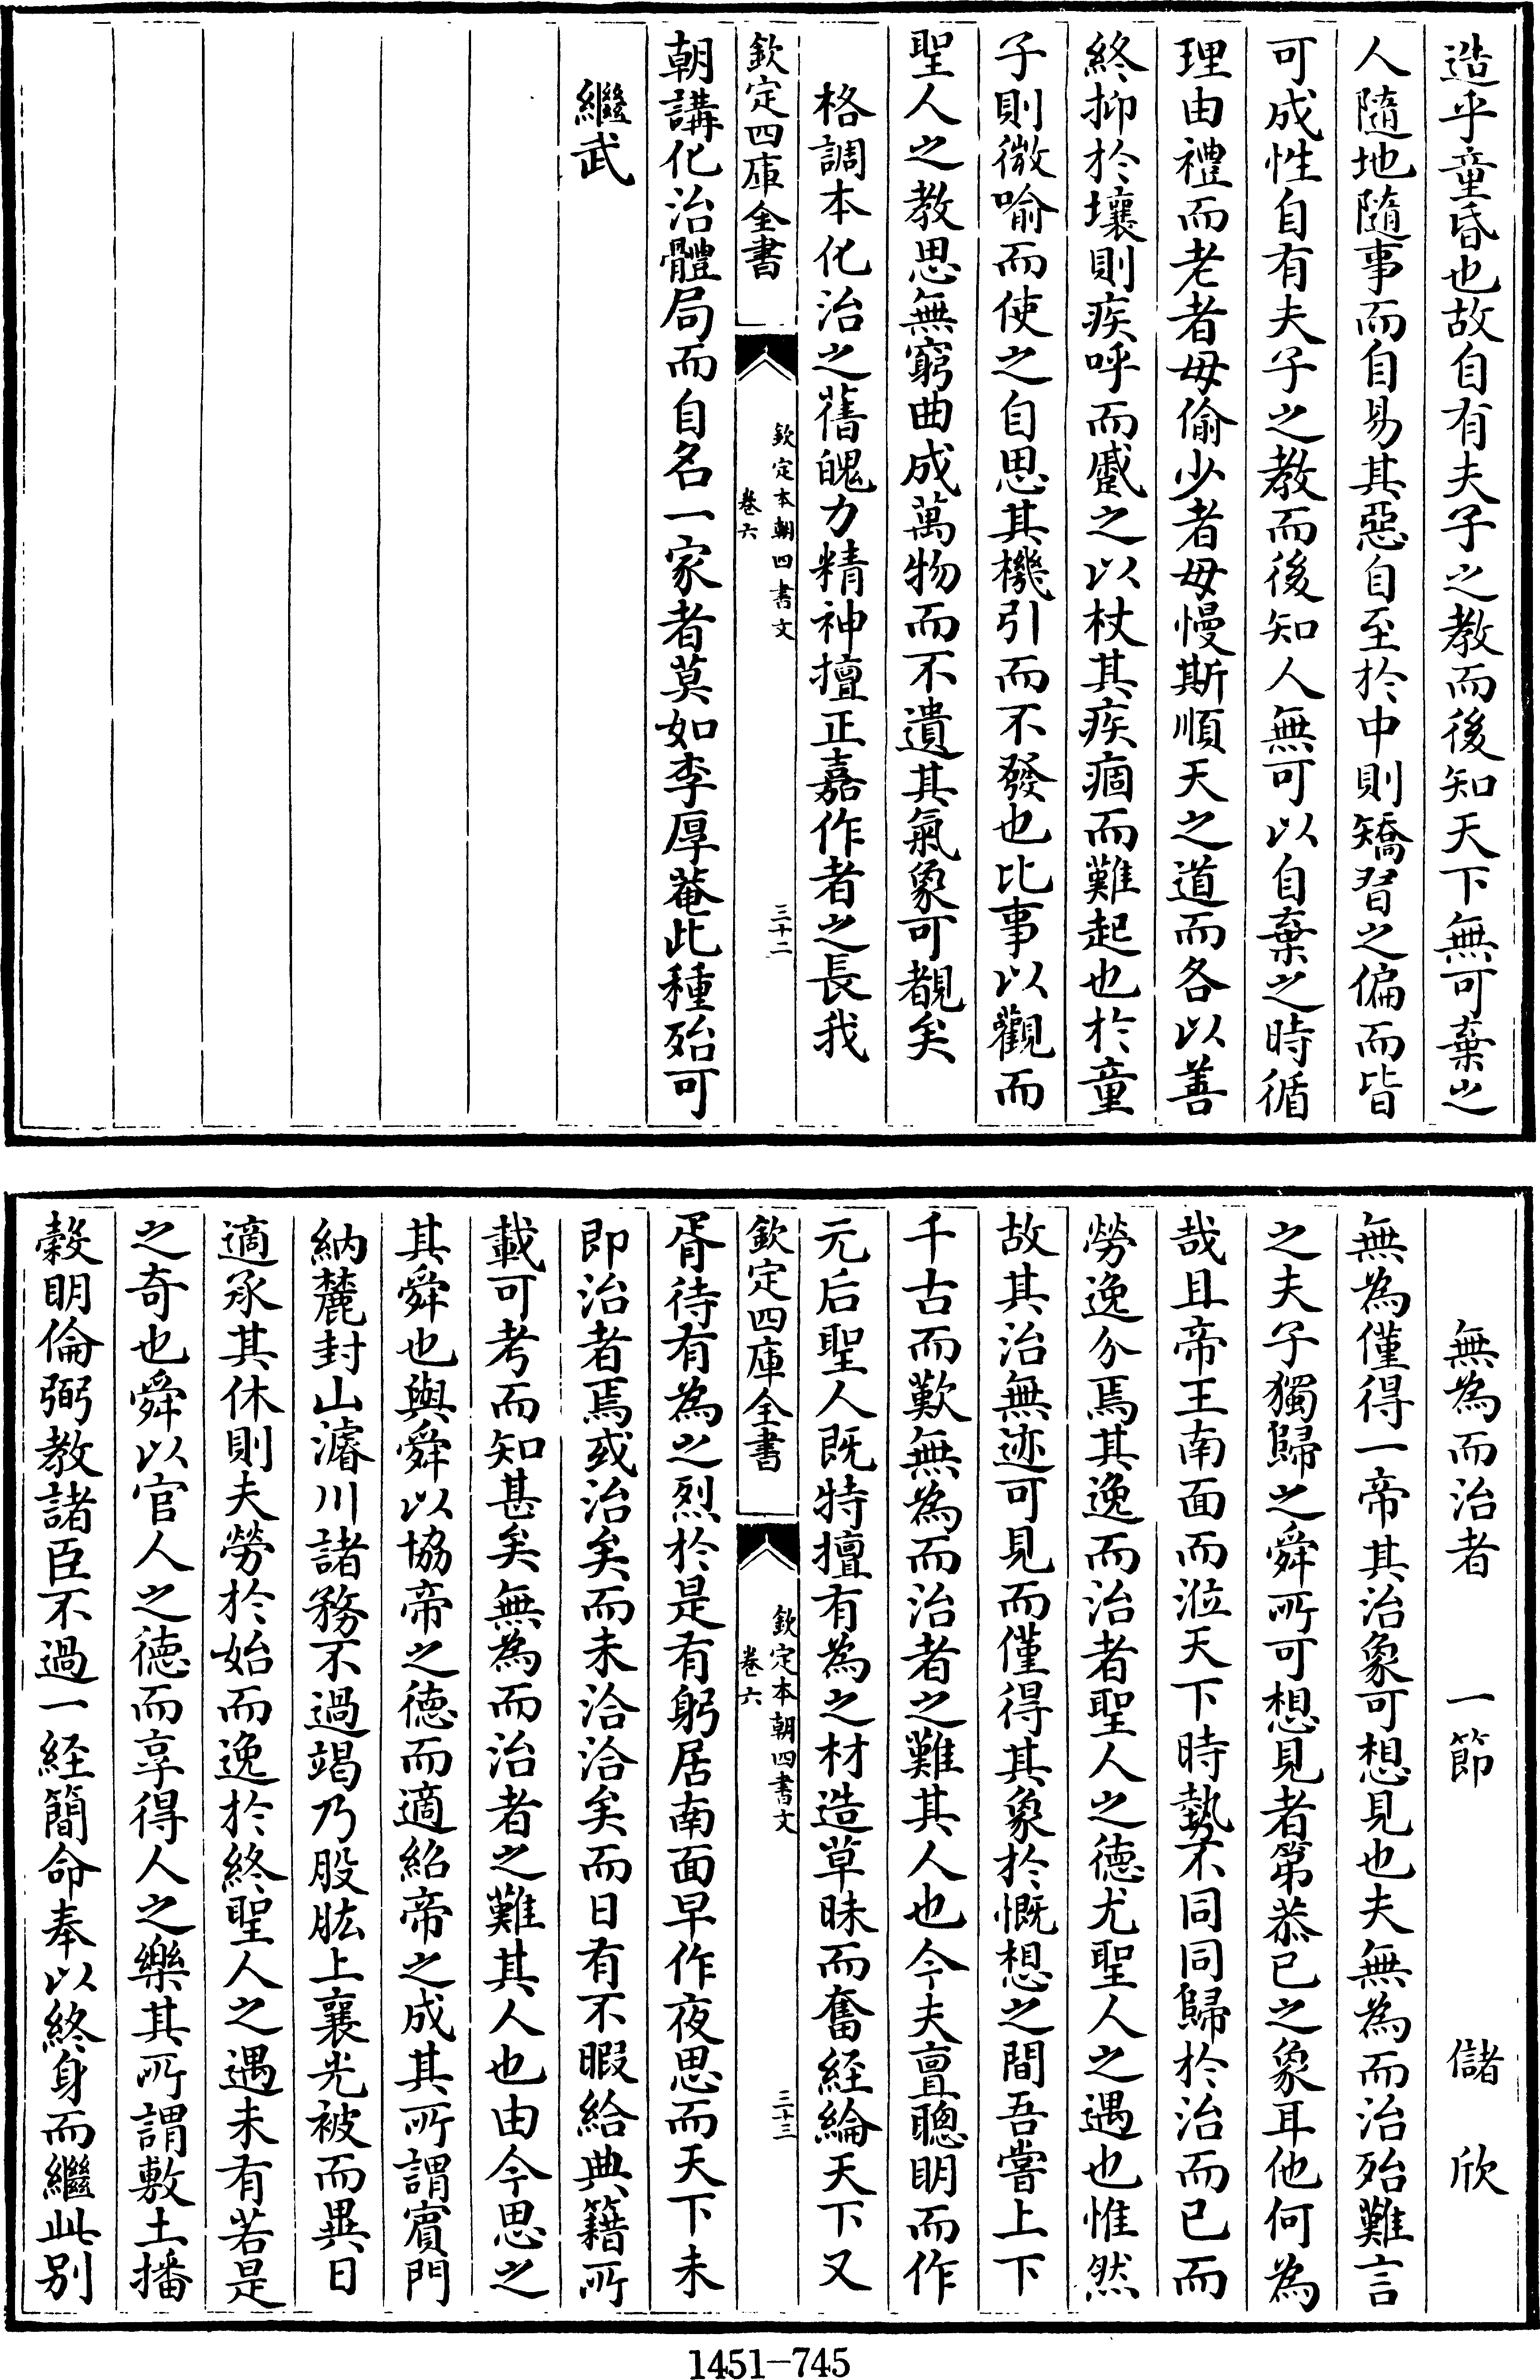 造乎童昏也故自有夫子之教而後知天下無可棄之
人隨地隨事而自易其惡自至於中則矯習之偏而皆
可成性自有夫子之教而後知人無可以自棄之時循
理由禮而老者毋偷少者毋慢斯順天之道而各以善
終抑於壤則疾呼而蹙之以杖其疾痼而難起也於童
子則微喻而使之自思其機引而不發也比事以觀而
聖人之教思無窮曲成萬物而不遺其氣象可覩矣
格調本化治之舊魄力精神擅正嘉作者之長我
欽定四庫全書
欽定本朝四書文
卷六
三十二
朝講化治體局而自名一家者莫如李厚菴此種殆可
繼武
無為而治者 一節 儲欣
無為僅得一帝其治象可想見也夫無為而治殆難言
之夫子獨歸之舜所可想見者第恭已之象耳他何為
哉且帝王南面而涖天下時勢不同同歸於治而已而
勞逸分焉其逸而治者聖人之德尤聖人之遇也惟然
故其治無迹可見而僅得其象於慨想之間吾嘗上下
千古而歎無為而治者之難其人也今夫亶聰明而作
元后聖人既特擅有為之材造草昧而奮經綸天下又
欽定四庫全書
欽定本朝四書文
卷六
三十三
胥待有為之烈於是有躬居南面早作夜思而天下未
即治者焉或治矣而未洽洽矣而日有不暇給典籍所
載可考而知甚矣無為而治者之難其人也由今思之
其舜也與舜以協帝之德而適紹帝之成其所謂賓門
納麓封山濬川諸務不過竭乃股肱上襄光被而異日
適承其休則夫勞於始而逸於終聖人之遇未有若是
之奇也舜以官人之德而享得人之樂其所謂敷土播
穀明倫弼教諸臣不過一經簡命奉以終身而繼此别
1451-745